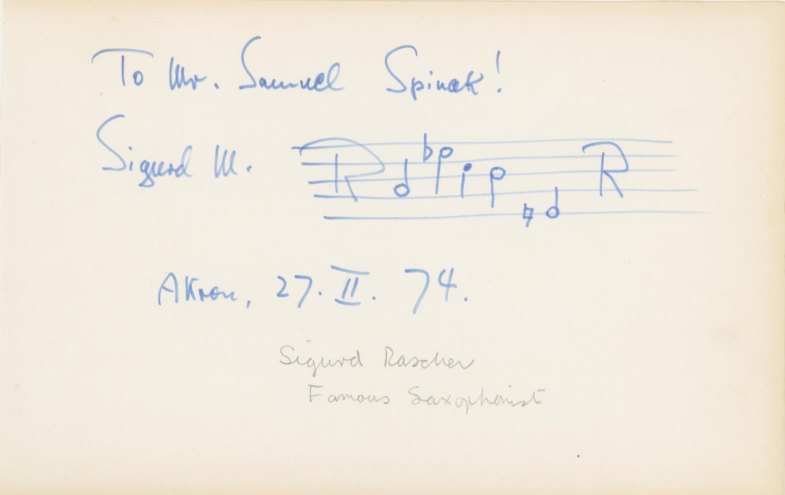 To Mr. Samuel Spinak!
Sigurd M. R ♭ ♮ R
Akron, 27. II. 74.
Sigurd Rascher
Famous Saxophonist